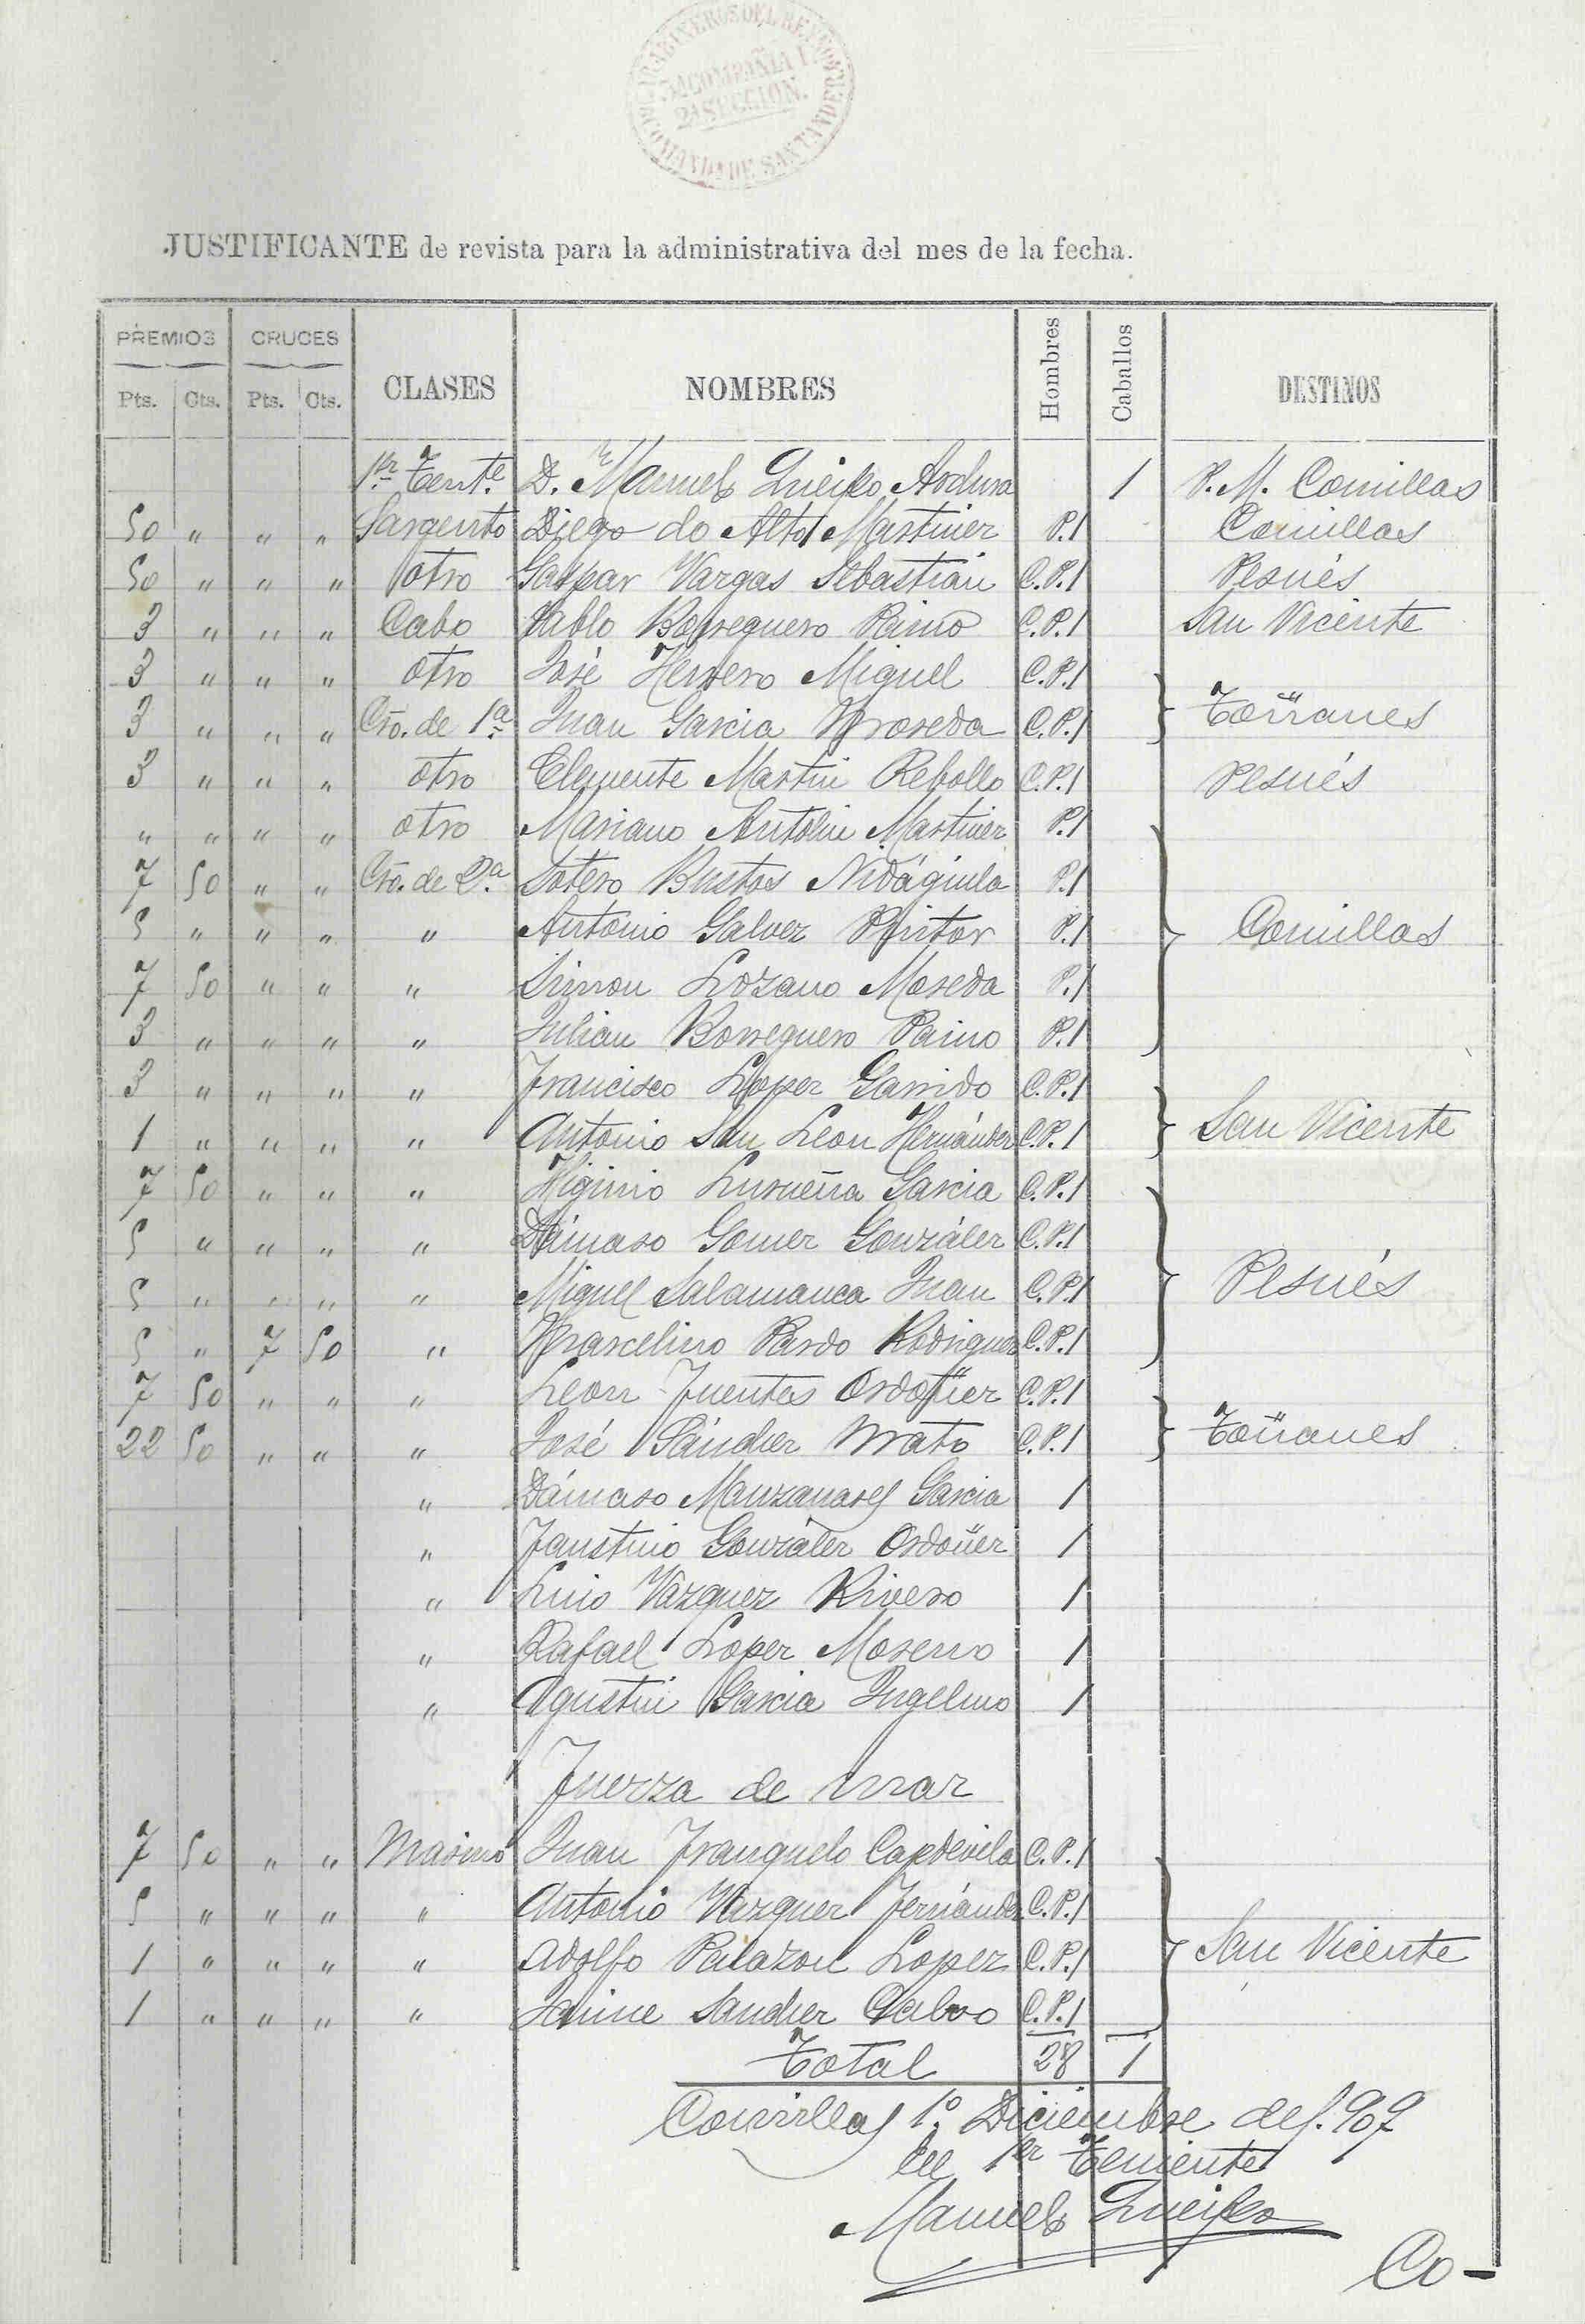 CARABINEROS DEL REINO
COMANDA DE SANTANDER
COMPAÑIA
2ª SECCION.
JUSTIFICANTE de revista para la administrativa del mes de la fecha.
PREMIOS CRUCES CLASES NOMBRES Hombres Caballos DESTINOS
Pts. Cts. Pts. Cts.
1er Tente. D. Manuel Queipo 1 P. M. Comillas
50 " " " Sargento Diego do Alto Martinez P. 1 Comillas
50 " " " otro Gaspar Vargas Sebastián C. P. 1 Pesués
3 " " " Cabo Pablo Borreguero Paino C. P. 1 San Vicente
3 " " " otro José Herrero Miguel C. P. 1
3 " " " Cro. de 1ª Juan Garcia Moroseda C. P. 1 } Toñanes
3 " " " otro Clemente Martin Rebollo C. P. 1 Pesués
" " " " otro Mariano Antolin Martinez P. 1
7 50 " " Cro. de 2ª Sotero Bustos Nidáguila P. 1
5 " " " " Antonio Galvez Pintor P. 1 } Comillas
7 50 " " " Simon Lozano Moreda P. 1
3 " " " " Julian Borreguero Paino P. 1
3 " " " " Francisco Lopez Garrido C. P. 1
1 " " " " Antonio San Leon Hernández C. P. 1 } San Vicente
7 50 " " " Higinio Lurueña Garcia C. P. 1
5 " " " " Dámaso Gomez González C. P. 1
5 " " " " Miguel Salamanca Juan C. P. 1 } Pesués
5 " 7 50 " Marcelino Pardo Rodriguez C. P. 1
7 50 " " " Leon Fuentes Ordoñez C. P. 1
22 50 " " " José Sánchez Mato C. P. 1 } Toñanes
" Dámaso Manzanares Garcia 1
" Faustino González Ordoñez 1
" Luis Vázquez Rivero 1
" Rafael Lopez Moreno 1
" Agustin Garcia Ingelmo 1
Fuerza de mar
7 50 " " Marino Juan Franquelo Capdevila C. P. 1
5 " " " " Antonio Vazquez Fernández C. P. 1
1 " " " " Adolfo Palazon Lopez C. P. 1 } San Vicente
1 " " " " Jaime Sanchez Calvo C. P. 1
Total 28 1
Comillas 1º Diciembre de 1.907
El 1er Teniente
Manuel Queipo
Co-